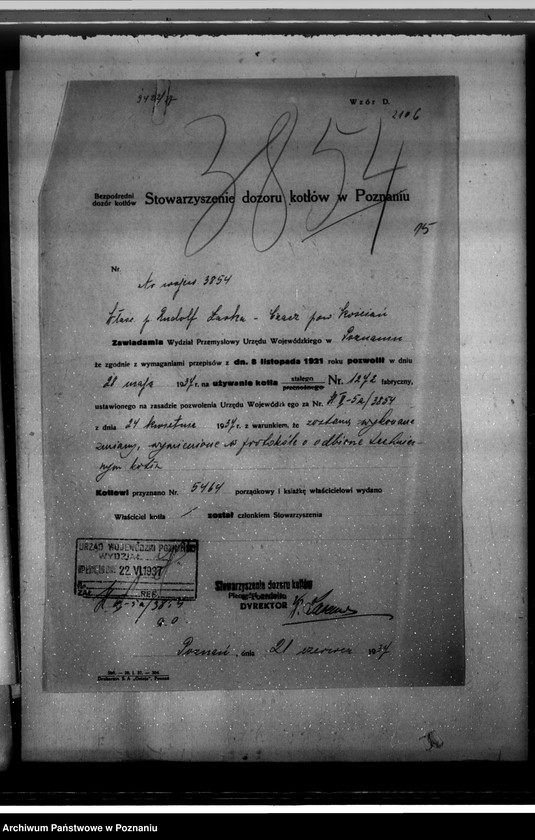 Wzór D.
2106
3854
Bezpośredni
dozór kotłów
Stowarzyszenie dozoru kotłów w Poznaniu
15
Nr.
Nr wojew 3854
Własc. p. Rudolf Laska - Czacz pow Kościan
Zawiadamia Wydział Przemysłowy Urzędu Wojewódzkiego w Poznaniu
że zgodnie z wymaganiami przepisów z dn. 8 listopada 1921 roku pozwolił w dniu
21 maja 1937 r. na używanie kotła stałego przenośnego Nr. 1272 fabryczny,
ustawionego na zasadzie pozwolenia Urzędu Wojewódzkiego za Nr. 5a/3854
z dnia 24 kwietnia 1937 r. z warunkiem, że zostaną wykonane
zmiany, wymienione w protokóle o odbiorze technicz-
nym kotła
Kotłowi przyznano Nr. 5464 porządkowy i książkę właścicielowi wydano
Właściciel kotła / został członkiem Stowarzyszenia
URZĄD WOJEWÓDZKI POZNAŃSKI
WYDZIAŁ
22 VI. 1937
Nr.
ZAŁ. REF.
5a/3854
Stowarzyszenie dozoru kotłów
DYREKTOR
Poznań, dnia 21 czerwca 1937
Drukarnia S. A. Poznań
Archiwum Państwowe w Poznaniu